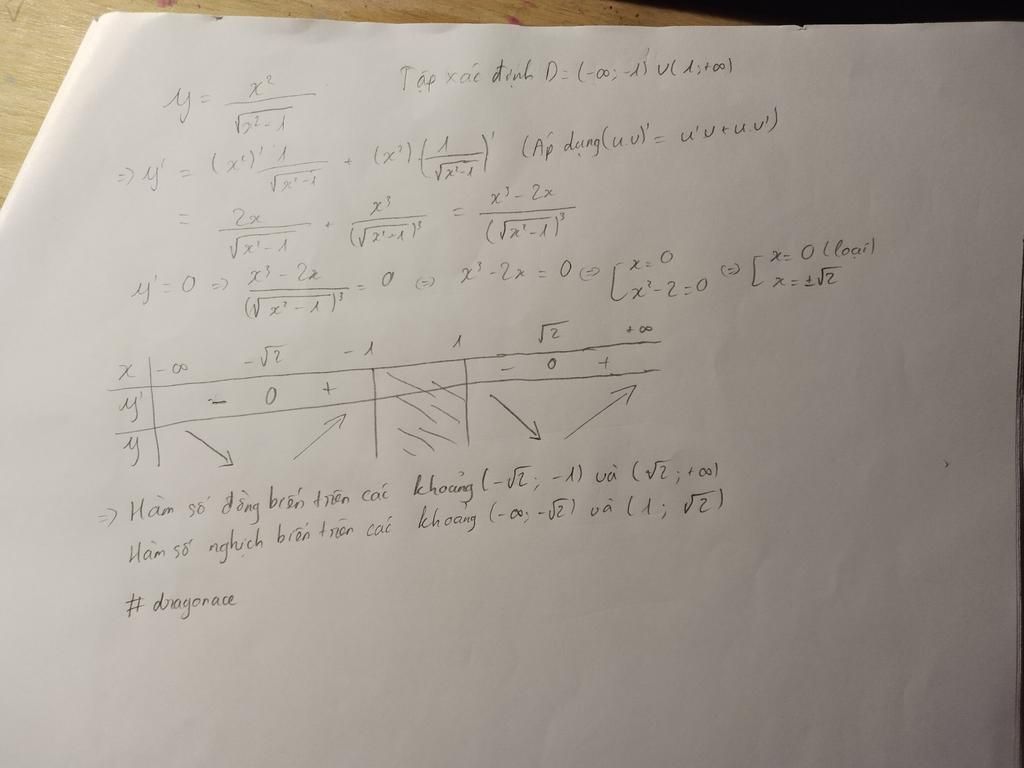 y = x²/√(x²-1) Tập xác định D = (-∞; -1) ∪ (1; +∞)
=> y' = (x²)' 1/√(x²-1) + (x²).(1/√(x²-1))' (Áp dụng (u.v)' = u'v + u.v')
= 2x/√(x²-1) + x³/(√(x²-1))³ = (x³ - 2x)/(√(x²-1))³
y' = 0 => (x³ - 2x)/(√(x²-1))³ = 0 <=> x³ - 2x = 0 <=> [x = 0; x² - 2 = 0 <=> [x = 0 (loại); x = ±√2
x -∞ -√2 -1 1 √2 +∞
y' - 0 + - 0 +
y ↘ ↗ ↘ ↗
=> Hàm số đồng biến trên các khoảng (-√2; -1) và (√2; +∞)
Hàm số nghịch biến trên các khoảng (-∞; -√2) và (1; √2)
# dragonace